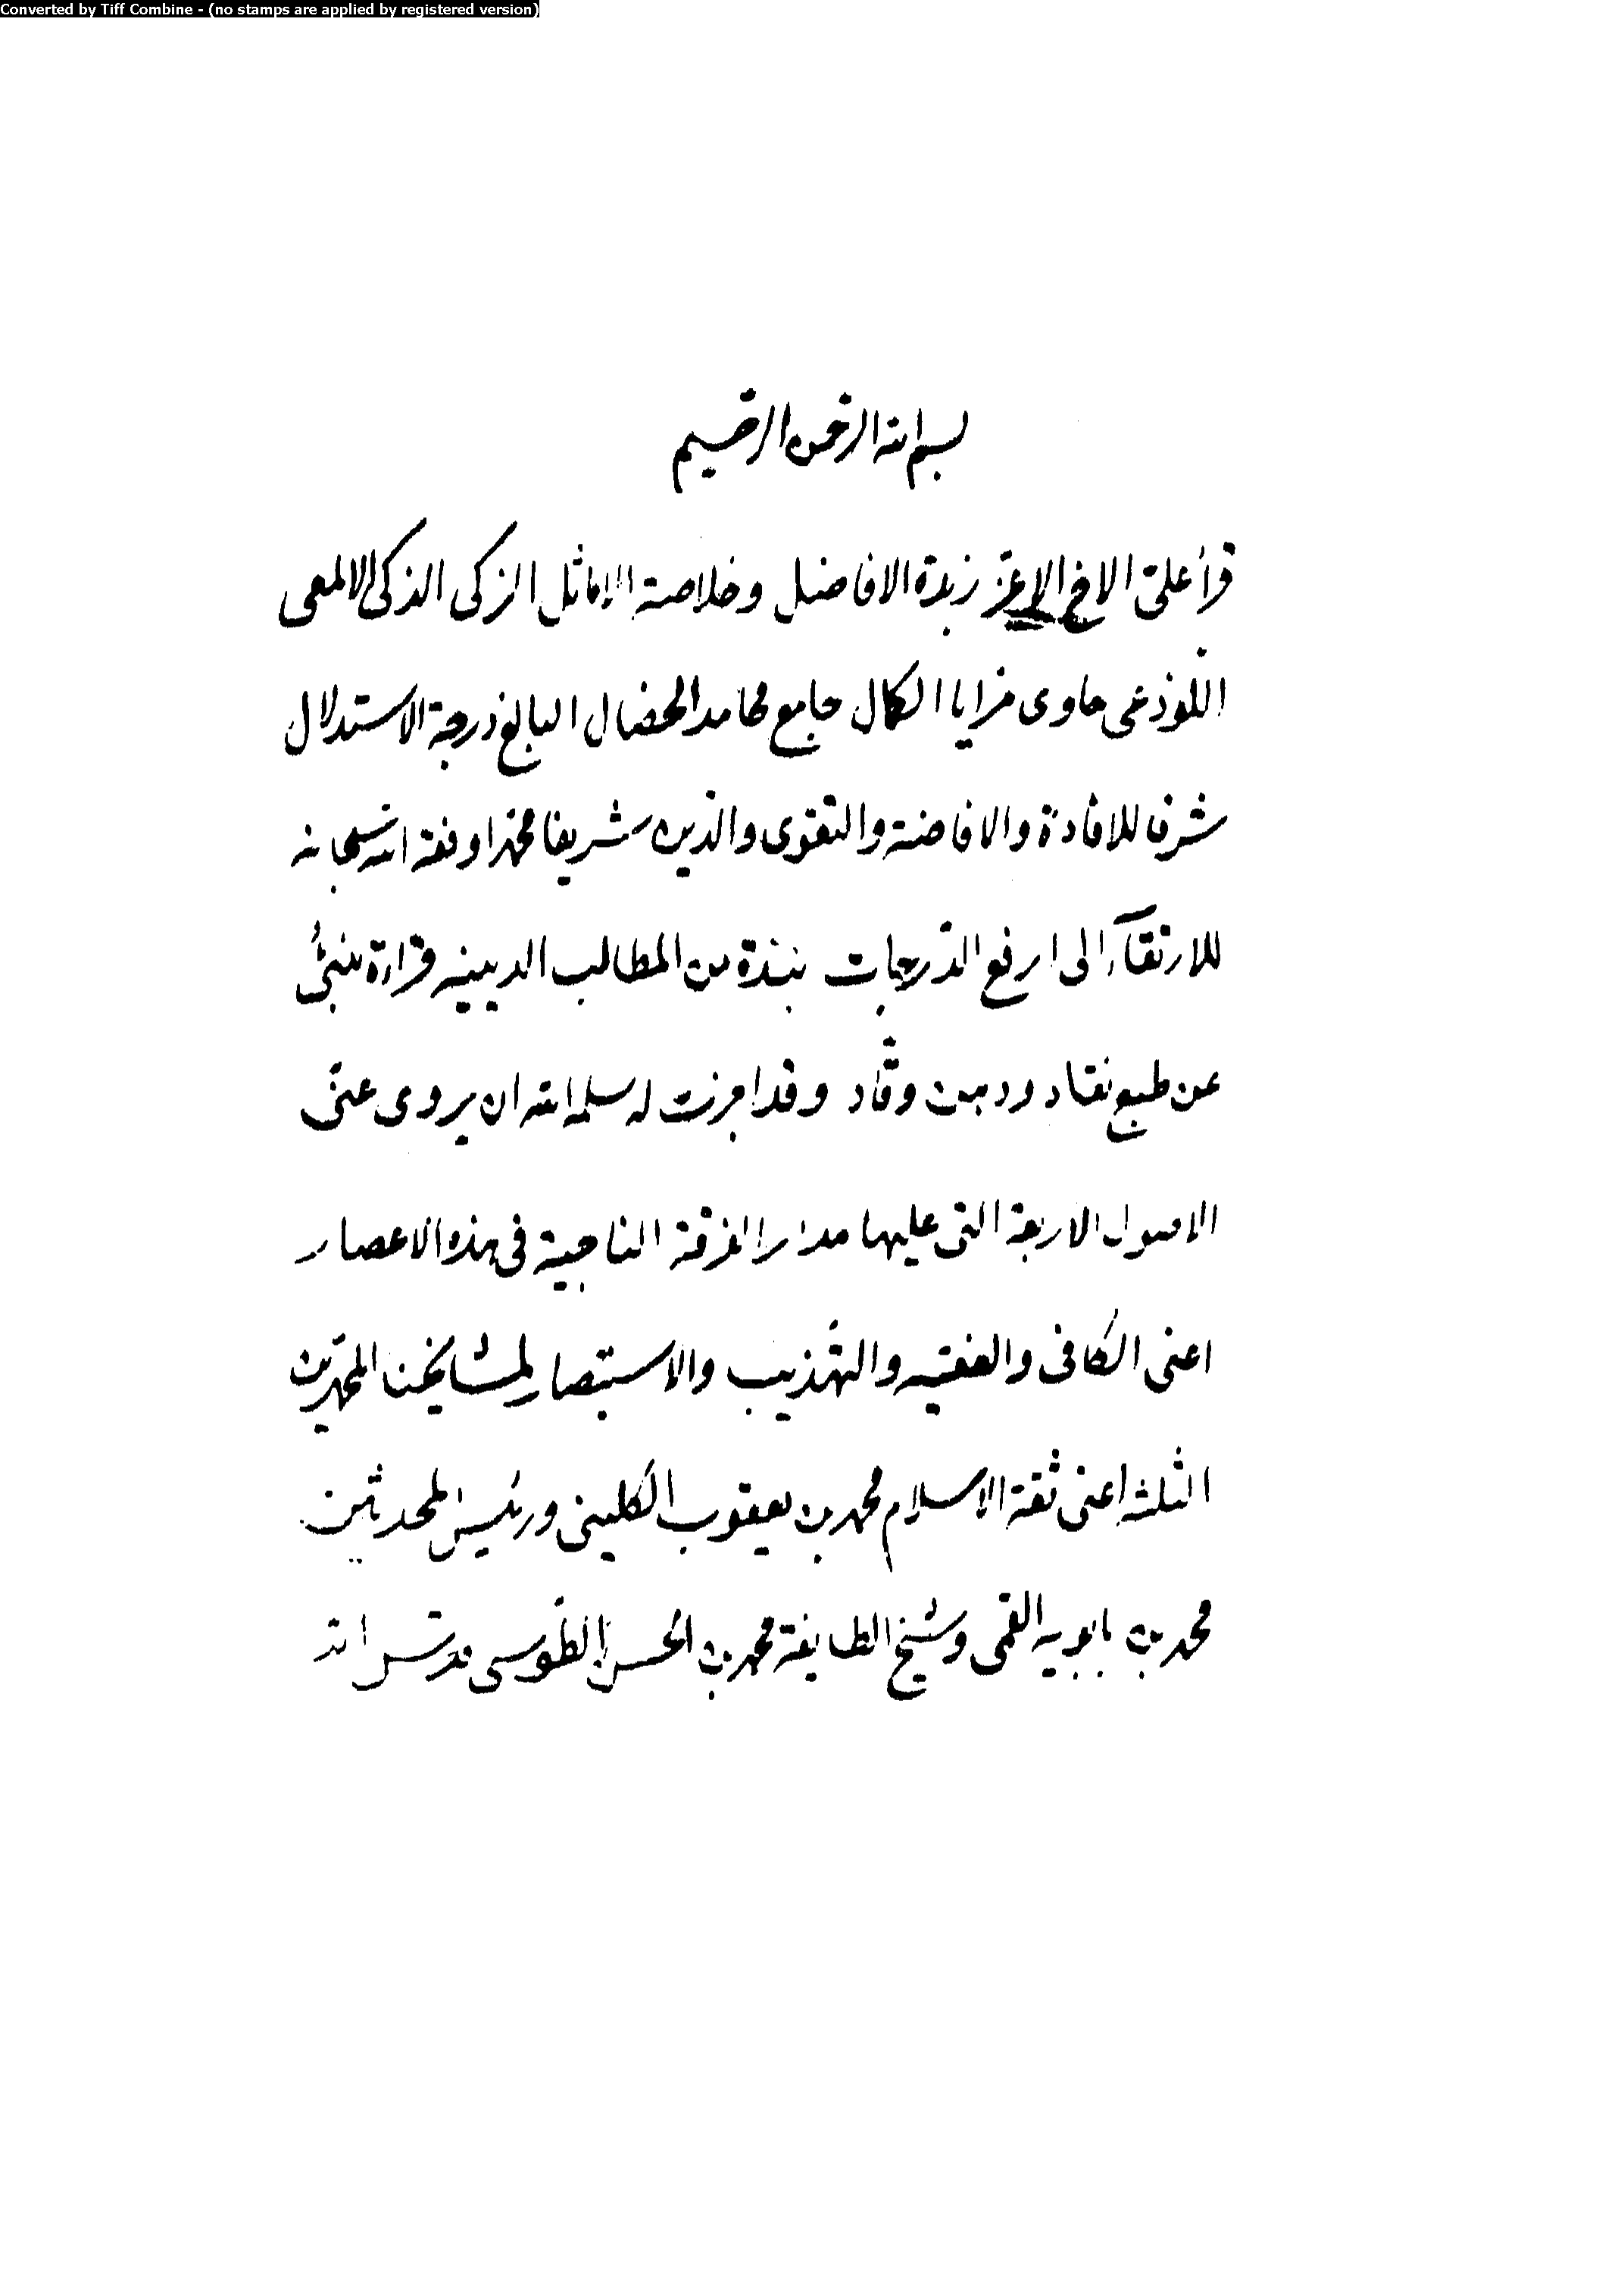 Converted by Tiff Combine - (no stamps are applied by registered version)
بسم الله الرحمن الرحيم
قرأ علىّ الاخ الاعز زبدة الافاضل وخلاصة الاماثل الزكى الذكى الالمعى
اللوذعى حاوى مزايا الكمال جامع محامد الخصال البالغ درجة الاستدلال
شرفا للافادة والافاضة والتقوى والدين شريفا محمدا وفقه الله سبحانه
للارتقآء الى ارفع الدّرجات بنبذة من المطالب الدينيه قراءة تنبئ
عن طبع نقاد وذهن وقّاد وقد اجزت له سلمه الله ان يروى عنّى
الاصول الاربعة التى عليها مدار الفرقة الناجية فى هذه الاعصار
اعنى الكافى والفقيه والتهذيب والاستبصار لمشايخنا المحمدين
الثلثة اعنى ثقة الاسلام محمد بن يعقوب الكلينى ورئيس المحدثين
محمد بن بابويه القمى وشيخ الطايفة محمد بن الحسن الطوسى قدّس الله